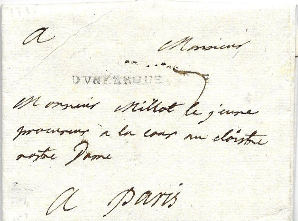 A
Monsieur
DUNKERQUE
Monsieur Millot le jeune
procureur a la cour au cloistre
nostre Dame
A paris